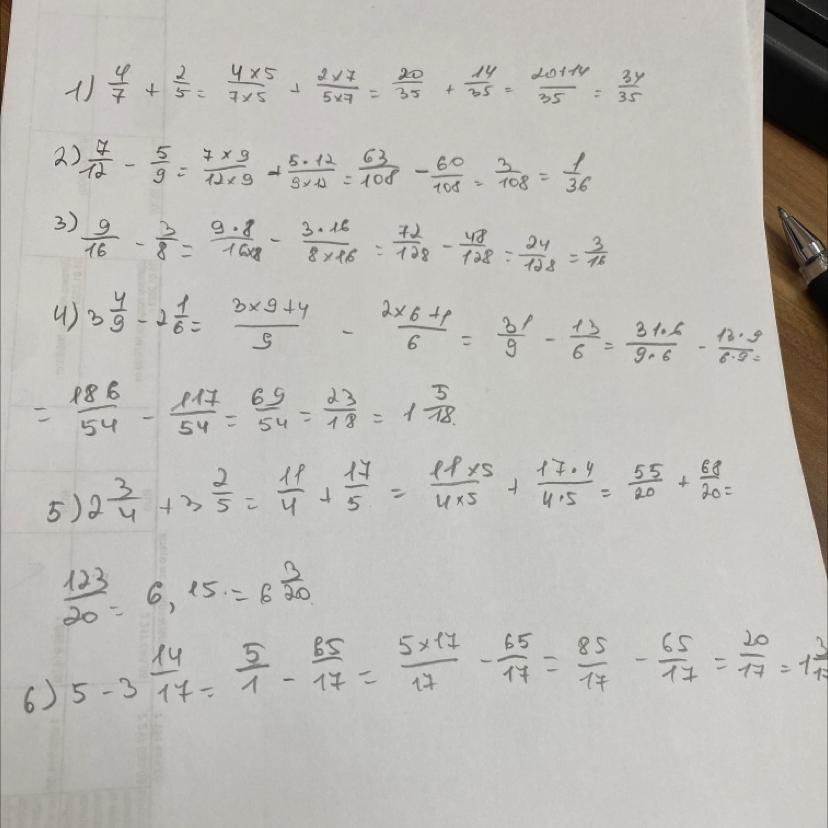 1) 4/7 + 2/5 = 4×5/7×5 + 2×7/5×7 = 20/35 + 14/35 = 20+14/35 = 34/35
2) 7/12 - 5/9 = 7×9/12×9 - 5·12/9×12 = 63/108 - 60/108 = 3/108 = 1/36
3) 9/16 - 3/8 = 9·8/16×8 - 3·16/8×16 = 72/128 - 48/128 = 24/128 = 3/16
4) 3 4/9 - 2 1/6 = 3×9+4/9 - 2×6+1/6 = 31/9 - 13/6 = 31·6/9·6 - 13·9/6·9 =
= 186/54 - 117/54 = 69/54 = 23/18 = 1 5/18.
5) 2 3/4 + 3 2/5 = 11/4 + 17/5 = 11×5/4×5 + 17·4/4·5 = 55/20 + 68/20 =
123/20 = 6,15. = 6 3/20.
6) 5 - 3 14/17 = 5/1 - 65/17 = 5×17/17 - 65/17 = 85/17 - 65/17 = 20/17 = 1 3/17